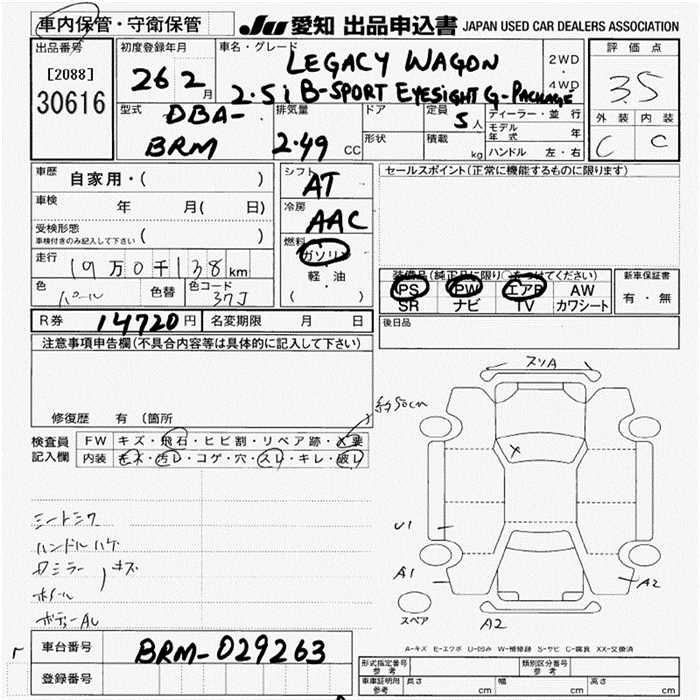 車内保管・守衛保管
JU 愛知 出品申込書 JAPAN USED CAR DEALERS ASSOCIATION
出品番号
[2088]
30616
初度登録年月
26 2月
車名・グレード
LEGACY WAGON
2.5i B-SPORT EYESIGHT G-PACKAGE
2WD
・
4WD
評価点
3.5
外装 内装
C C
型式
DBA-
BRM
排気量
2.49 CC
ドア
形状
定員
5人
積載
kg
ディーラー・並行
モデル年式 年
ハンドル 左・右
車歴
自家用・( )
車検
年 月( 日)
受検形態
車検付きのみ記入して下さい ( )
走行
19万0千138km
色
パール
色替
色コード
37J
シフト
AT
冷房
AAC
燃料
ガソリン
・
軽・油
( )
セールスポイント(正常に機能するものに限ります)
装備品(純正品に限り○をつけてください)
PS PW エアB AW
SR ナビ TV カワシート
新車保証書
有・無
R券 14720円
名変期限 月 日
後日品
注意事項申告欄(不具合内容等は具体的に記入して下さい)
修復歴 有 (箇所
約50cm
検査員
記入欄
FW キズ・飛石・ヒビ割・リペア跡・X要
内装 キズ・汚レ・コゲ・穴・スレ・キレ・破レ
シートシワ
ハンドルハゲ
Rミラー キズ
ホイール
ボディーAU
スリA
X
U1
A1
A2
A2
スペア
A-キズ E-エクボ U-凹み W-補修跡 S-サビ C-腐食 XX-交換済
車台番号
BRM-029263
登録番号
形式指定番号
参考
類別区分番号
参考
車庫証明用
参考
長さ cm 幅 cm 高さ cm